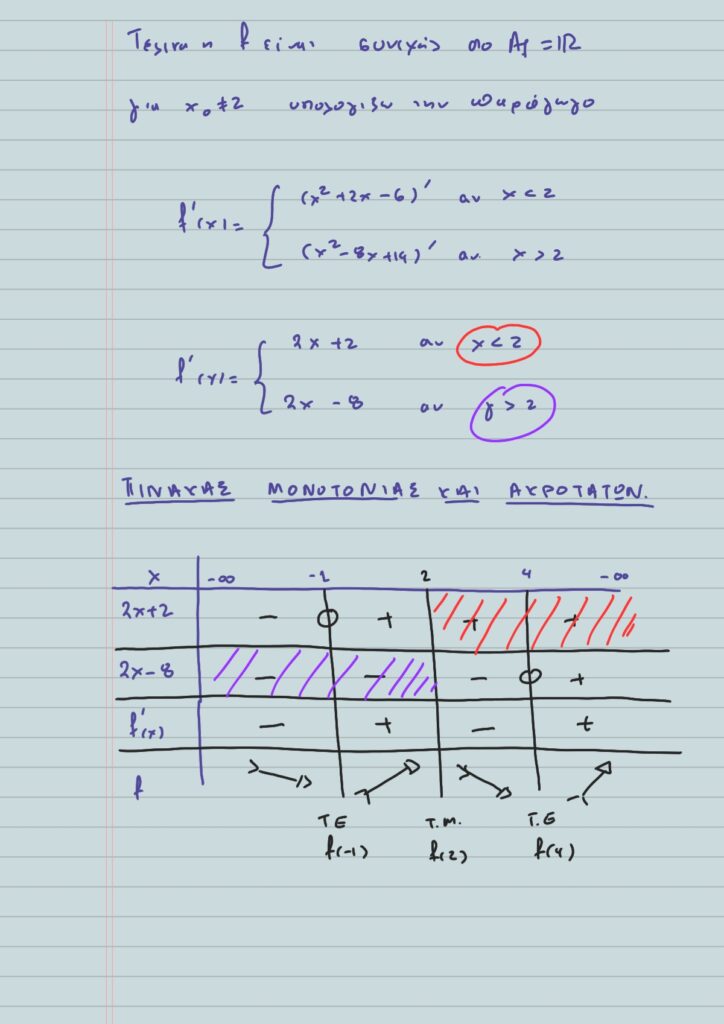 Τελικα η f ειναι συνεχης στο Af = ℝ
για x₀ ≠ 2 υπολογιζω την παράγωγο
f'(x) = { (x² + 2x - 6)' αν x < 2
(x² - 8x + 14)' αν x > 2
f'(x) = { 2x + 2 αν x < 2
2x - 8 αν x > 2
ΠΙΝΑΚΑΣ ΜΟΝΟΤΟΝΙΑΣ ΚΑΙ ΑΚΡΟΤΑΤΩΝ.
x -∞ -1 2 4 -∞
2x+2 - 0 + + +
2x-8 - - - 0 +
f'(x) - + - +
f ↘ ↗ ↘ ↗
Τ.Ε Τ.Μ. Τ.Ε
f(-1) f(2) f(4)